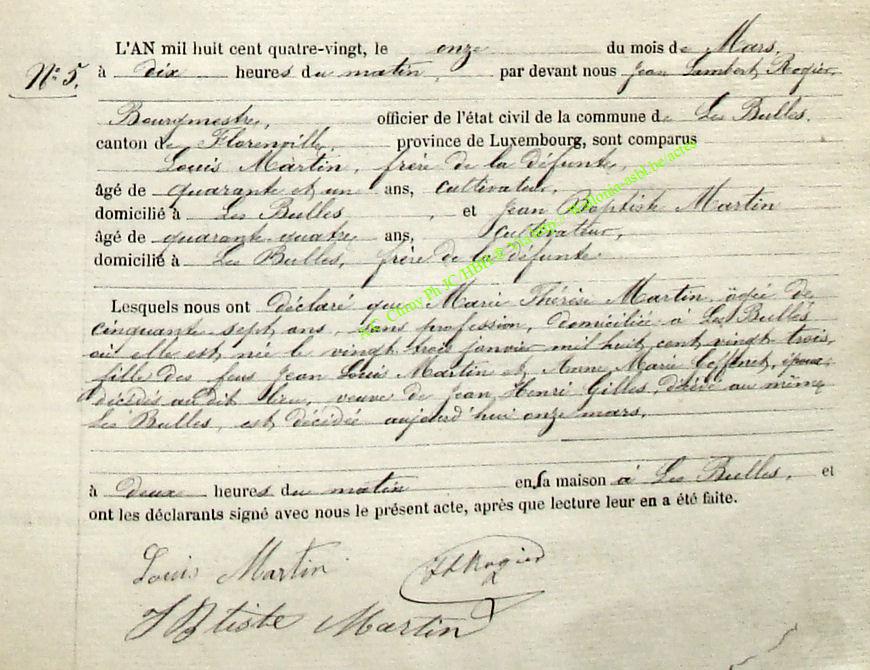 L'AN mil huit cent quatre-vingt, le onze du mois de Mars,
N° 5. à dix heures du matin, par devant nous Jean Lambert Rogier,
Bourgmestre, officier de l'état civil de la commune de Les Bulles,
canton de Florenville, province de Luxembourg, sont comparus
Louis Martin, frère de la défunte,
âgé de quarante et un ans, cultivateur,
domicilié à Les Bulles, et Jean Baptiste Martin
âgé de quarante quatre ans, cultivateur,
domicilié à Les Bulles, frère de la défunte
Lesquels nous ont déclaré que Marie Thérèse Martin, âgée de
cinquante sept ans, sans profession, domiciliée à Les Bulles
où elle est née le vingt trois janvier mil huit cent vingt trois,
fille des feus Jean Louis Martin et Anne Marie époux
décédés au dit lieu, veuve de Jean Henri Gilles, décédé au même
Les Bulles, est décédée aujourd'hui onze mars,
à deux heures du matin en sa maison à Les Bulles, et
ont les déclarants signé avec nous le présent acte, après que lecture leur en a été faite.
Louis Martin JLRogier
JBtiste Martin